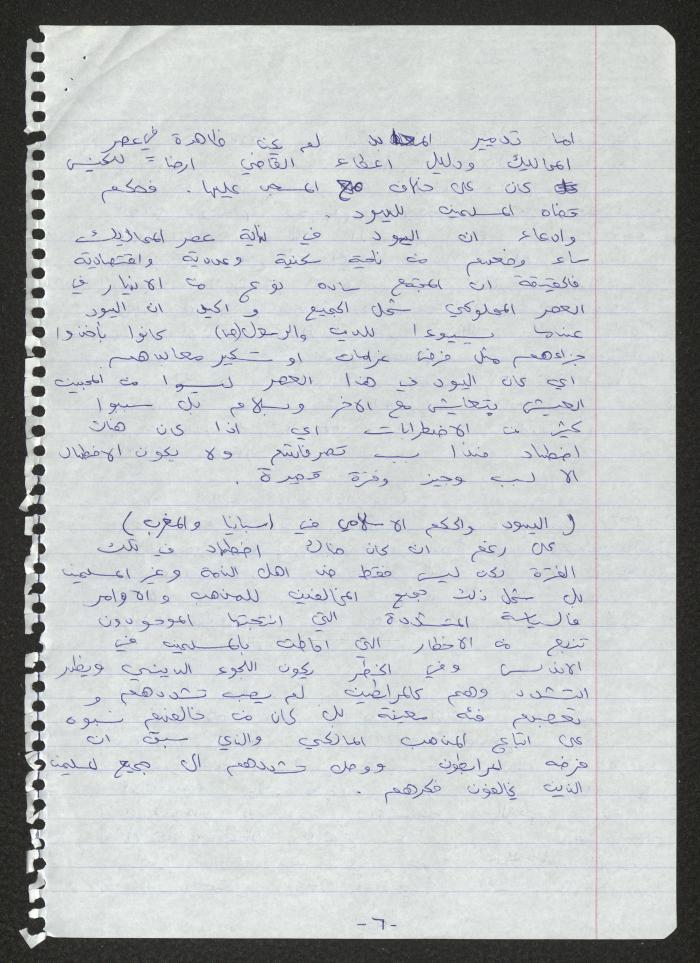 اما تدمير المعابد لم يكن ظاهرة في عصر
المماليك ودليل اعطاء القاضي ارضاً للكنيس
كان على خلاف مع المسجد عليها. فحكم
قضاه المسلمين لليهود.
وادعاء ان اليهود في بداية عصر المماليك
ساء وضعهم من ناحية سكنية وعددية واقتصادية
فالحقيقة ان المجتمع ساده نوع من الانهيار في
العصر المملوكي شمل الجميع واكيد ان اليهود
عندما يسيئوا للدين والرسول (ص) كانوا يأخذوا
جزاءهم مثل فرض غرامات او تسكير معابدهم
اي كان اليهود في هذا العصر ليسوا من المحبين
العيش بتعايش مع الاخر وبسلام بل سببوا
كثير من الاضطرابات اي اذا كان هناك
اضطهاد فهذا بسبب تصرفاتهم ولا يكون الاضطهاد
الا لسبب وجيز وفترة قصيرة.
(اليهود والحكم الاسلامي في اسبانيا والمغرب)
على رغم ان كان هناك اضطهاد في تلك
الفترة لكن ليس فقط ضد اهل الذمة وغير المسلمين
بل شمل ذلك جميع المخالفين للمذهب والاوامر
فالسياسة المتشددة التي انتهجتها الموحدون
تنبع من الاخطار التي احاطت بالمسلمين في
الاندلس وفي الخطر يكون اللجوء الديني ويظهر
التشدد وهم كالمرابطين لم يصب تشددهم و
تعصبهم فئه معينة بل كان من خالفهم
على اتباع المذهب المالكي والذي سبق ان
فرضه المرابطون ووصل تشددهم الى جميع المسلمين
الذين يخالفون فكرهم.
-٦-